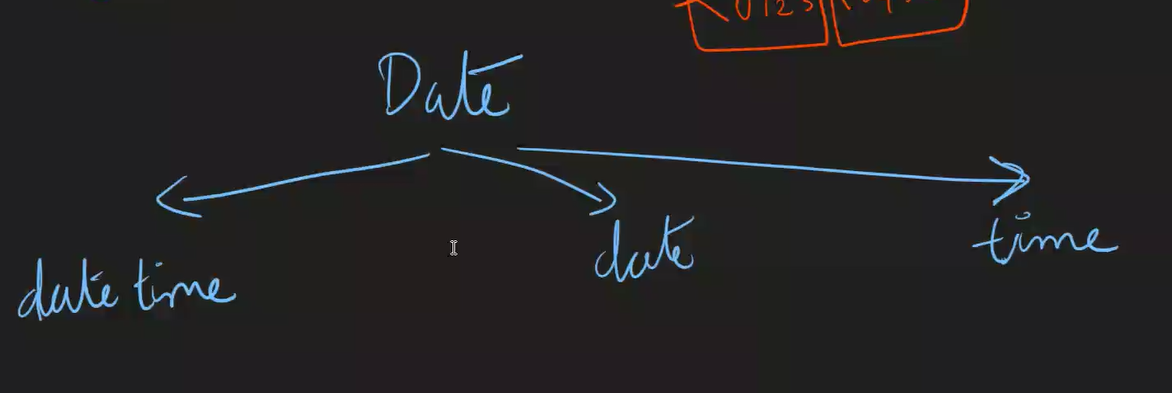 Date
date time
date
time